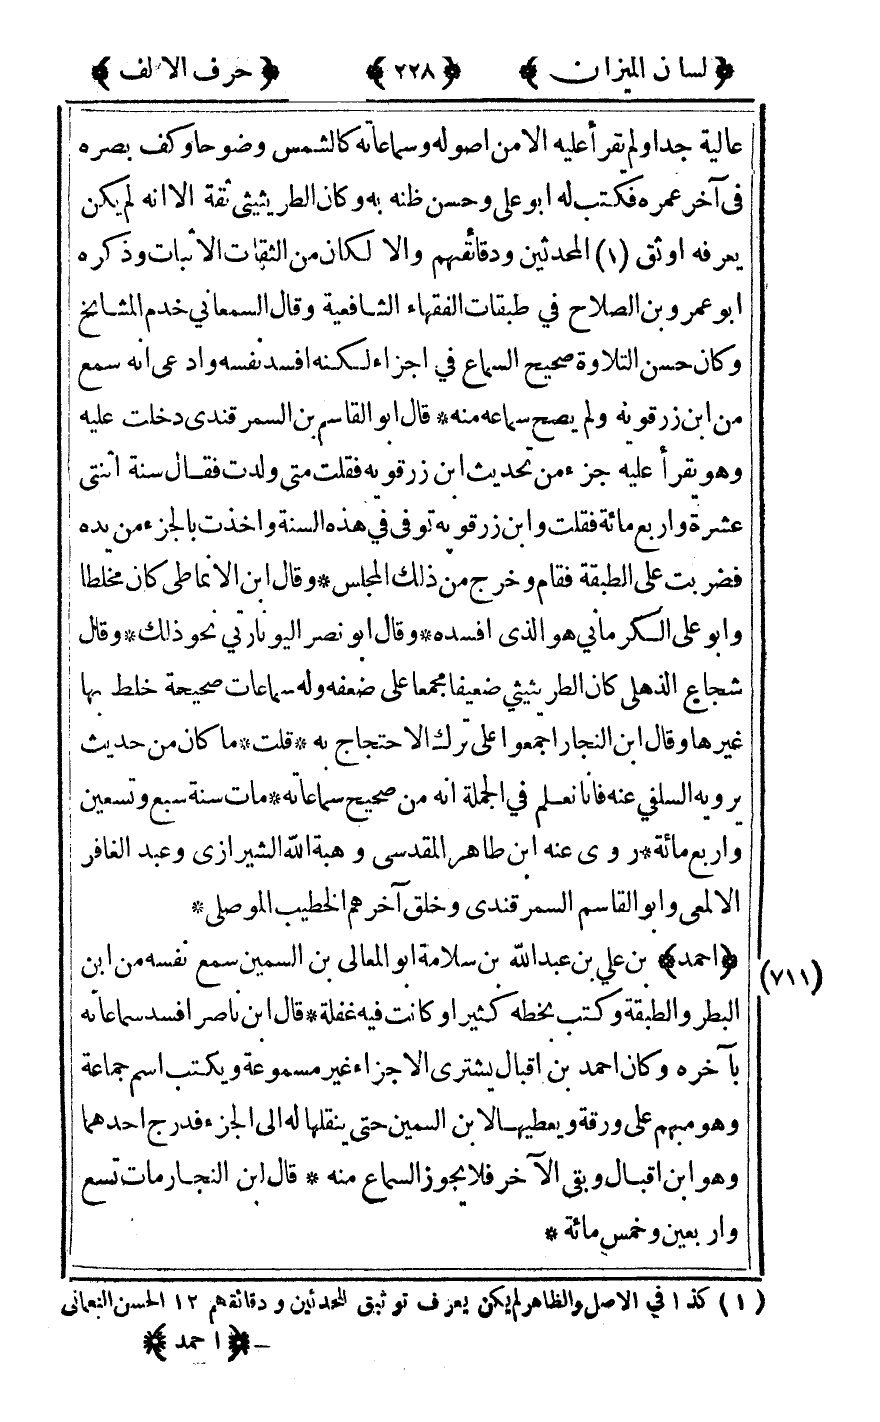 ﴿ لسان الميزان ﴾ ﴿ ٢٢٨ ﴾ ﴿ حرف الالف ﴾
عالية جدا ولم يقرأ عليه الا من اصوله وسماعاته كالشمس وضوحا وكف بصره
فى آخر عمره فكتب له ابو على وحسن ظنه به وكان الطريثيثى ثقة الا انه لم يكن
يعرفه اوثق (١) المحدثين ودقائقهم والا لكان من الثقات الاثبات وذكره
ابو عمرو بن الصلاح في طبقات الفقهاء الشافعية وقال السمعاني خدم المشايخ
وكان حسن التلاوة صحيح السماع في اجزاء لكنه افسد نفسه وادعى انه سمع
من ابن زرقويه ولم يصح سماعه منه * قال ابو القاسم بن السمرقندى دخلت عليه
وهو يقرأ عليه جزء من تحديث ابن زرقويه فقلت متى ولدت فقال سنة اثنتى
عشرة واربع مائة فقلت وابن زرقويه توفى في هذه السنة واخذت بالجزء من يده
فضربت على الطبقة فقام وخرج من ذلك المجلس * وقال ابن الانماطى كان مخلطا
وابو على الكرماني هو الذى افسده * وقال ابو نصر اليونارتي نحو ذلك * وقال
شجاع الذهلى كان الطريثيثي ضعيفا مجمعا على ضعفه وله سماعات صحيحة خلط بها
غيرها وقال ابن النجار اجمعوا على ترك الاحتجاج به * قلت * ما كان من حديث
يرويه السلفي عنه فانا نعلم في الجملة انه من صحيح سماعاته * مات سنة سبع وتسعين
واربع مائة * روى عنه ابن طاهر المقدسى وهبة الله الشيرازى وعبد الغافر
الالمعى وابو القاسم السمرقندى وخلق آخرهم الخطيب الموصلى *
﴿احمد﴾ بن علي بن عبدالله بن سلامة ابو المعالى بن السمين سمع نفسه من ابن (٧١١)
البطر والطبقة وكتب بخطه كثيرا وكانت فيه غفلة * قال ابن ناصر افسد سماعاته
بآخره وكان احمد بن اقبال يشترى الاجزاء غير مسموعة ويكتب اسم جماعة
وهو مبهم على ورقة ويعطيها لابن السمين حتى ينقلها له الى الجزء فدرج احدهما
وهو ابن اقبال وبقى الآخر فلا يجوز السماع منه * قال ابن النجار مات تسع
واربعين وخمس مائة *
(١) كذا في الاصل والظاهر لم يكن يعرف توثيق المحدثين ودقائقهم ١٢ الحسن النعمانى
﴿ احمد ﴾